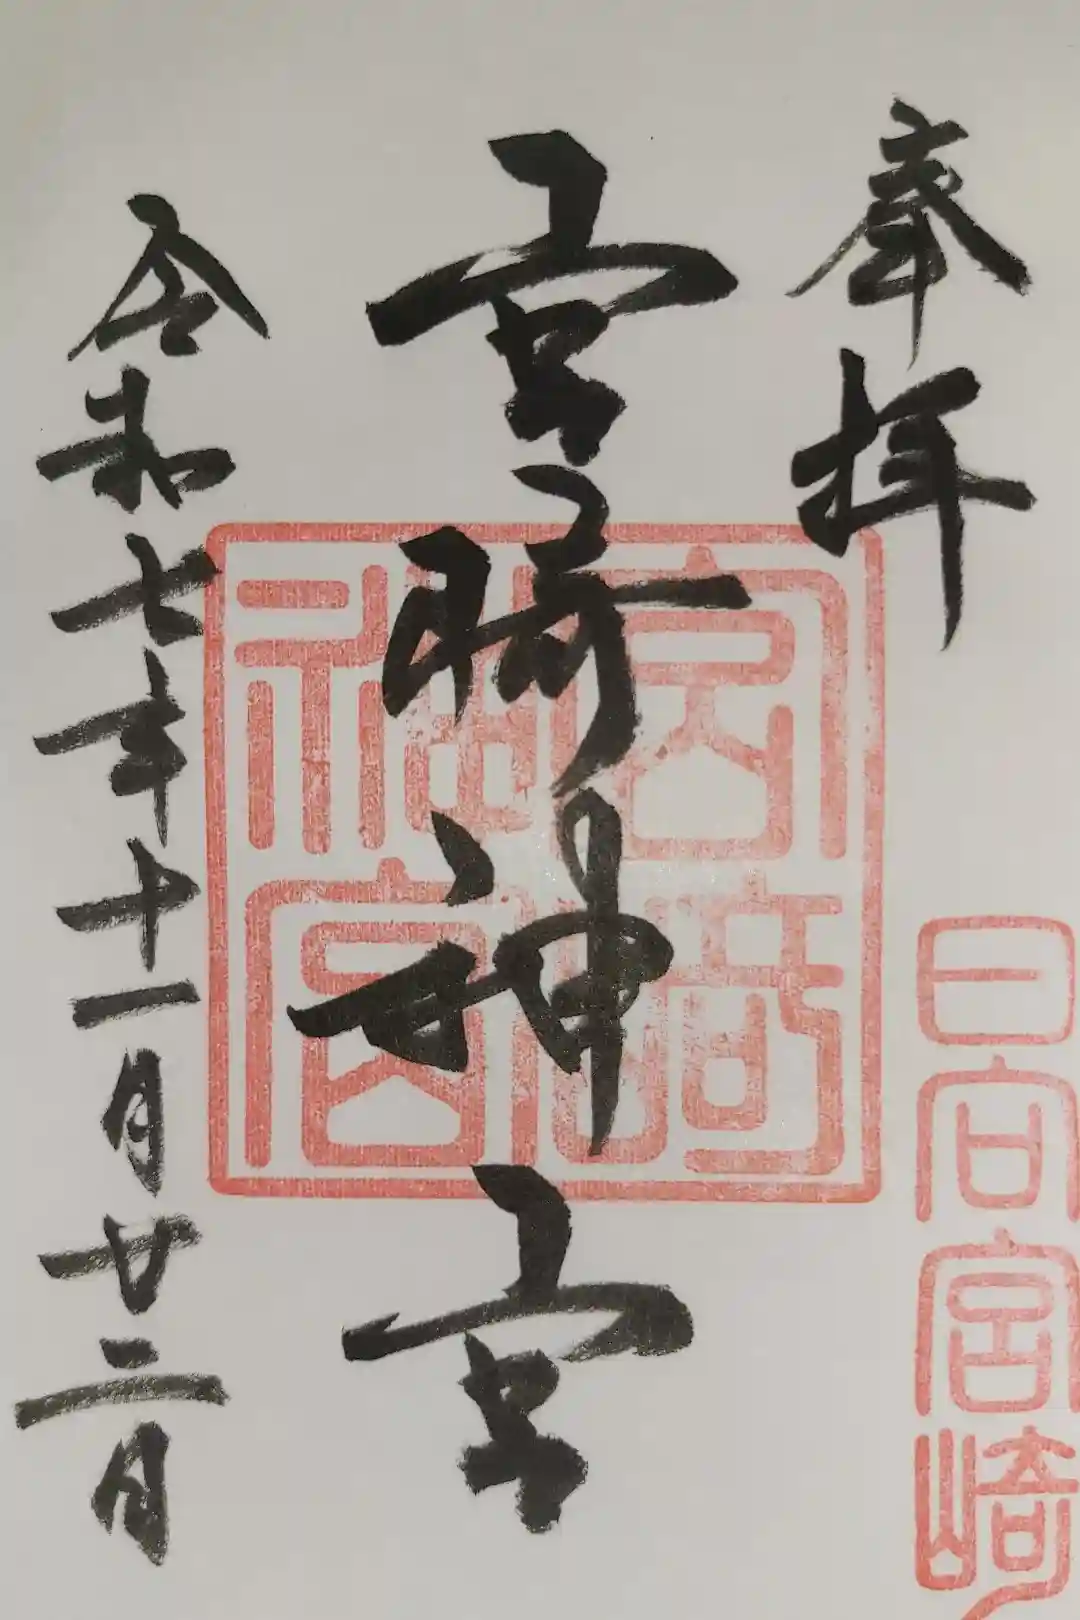 奉拝
日向宮崎
宮崎神宮
宮崎神宮
令和七年十一月廿二日